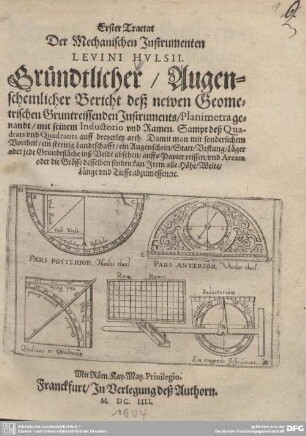 Erster Tractat
Der Mechanischen Instrumenten
LEVINI HVLSII.
Gründtlicher / Augen-
scheinlicher Bericht deß newen Geome-
trischen Gruntreissenden Instruments / Planimetra ge-
nandt / mit seinem Inductorio vnd Ramen. Sampt deß Qua-
drats vnd Quadrants auff dreyerley arth. Damit man mit sonderlichem
Vortheil / ein streitig Landtschafft / ein Augenschein / Statt / Vestung / Läger
oder jede Grundtfläche inß Weite absehen / auffs Papier reissen / vnd Aream
oder die Grösse desselben finden kan. Item alle Höhe / Weite /
Länge vnd Tieffe abzumessen / ꝛc.
PARS POSTERIOR. Hinder theil.
PARS ANTERIOR. Vorder theil.
Ramen
Inductorium
Quadrans et Quadratum
Mit Röm. Kay. May. Privilegio.
Franckfurt / In Verlegung deß Authorn.
M. DC. IIII.
1604